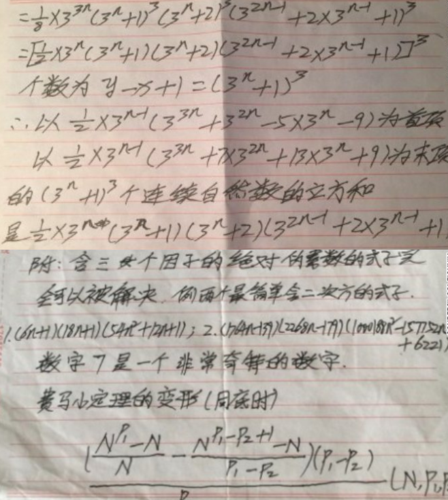 =1/8×3^{3n}(3^n+1)^3(3^n+2)^3(3^{2n-1}+2×3^{n-1}+1)^3
=[1/2×3^n(3^n+1)(3^n+2)(3^{2n-1}+2×3^{n-1}+1)]^3
个数为 y-x+1=(3^n+1)^3
∴以 1/2×3^{n-1}(3^{3n}+3^{2n}-5×3^n-9)为首项
以 1/2×3^{n-1}(3^{3n}+7×3^{2n}+13×3^n+9)为末项
的(3^n+1)^3个连续自然数的立方和
是 1/2×3^n(3^n+1)(3^n+2)(3^{2n-1}+2×3^{n-1}+1
附:含三个因子的绝对伪素数的式子完
全可以被解决,例两个最简单含二次方的式子.
1.(6n+1)(18n+1)(54n²+12n+1); 2.
数字7是一个非常奇特的数字.
费马小定理的变形(同底时)
(\frac{N^{P_1}-N}{N}-\frac{N^{P_1-P_2+1}-N}{P_1-P_2})(P_1-P_2)
(N,P_1,P